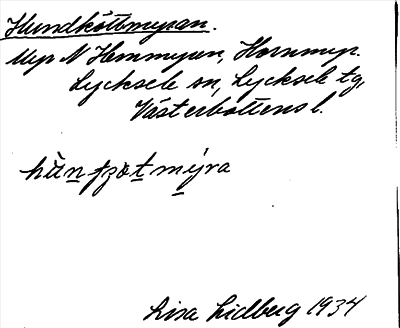 Hundköttmyran.
Myr N Hemmyran, Hornmyr.
Lycksele sn, Lycksele tg,
Västerbottens l.
hùn̲ ʈʂot̲ my̲ra
Lisa Lidberg 1934